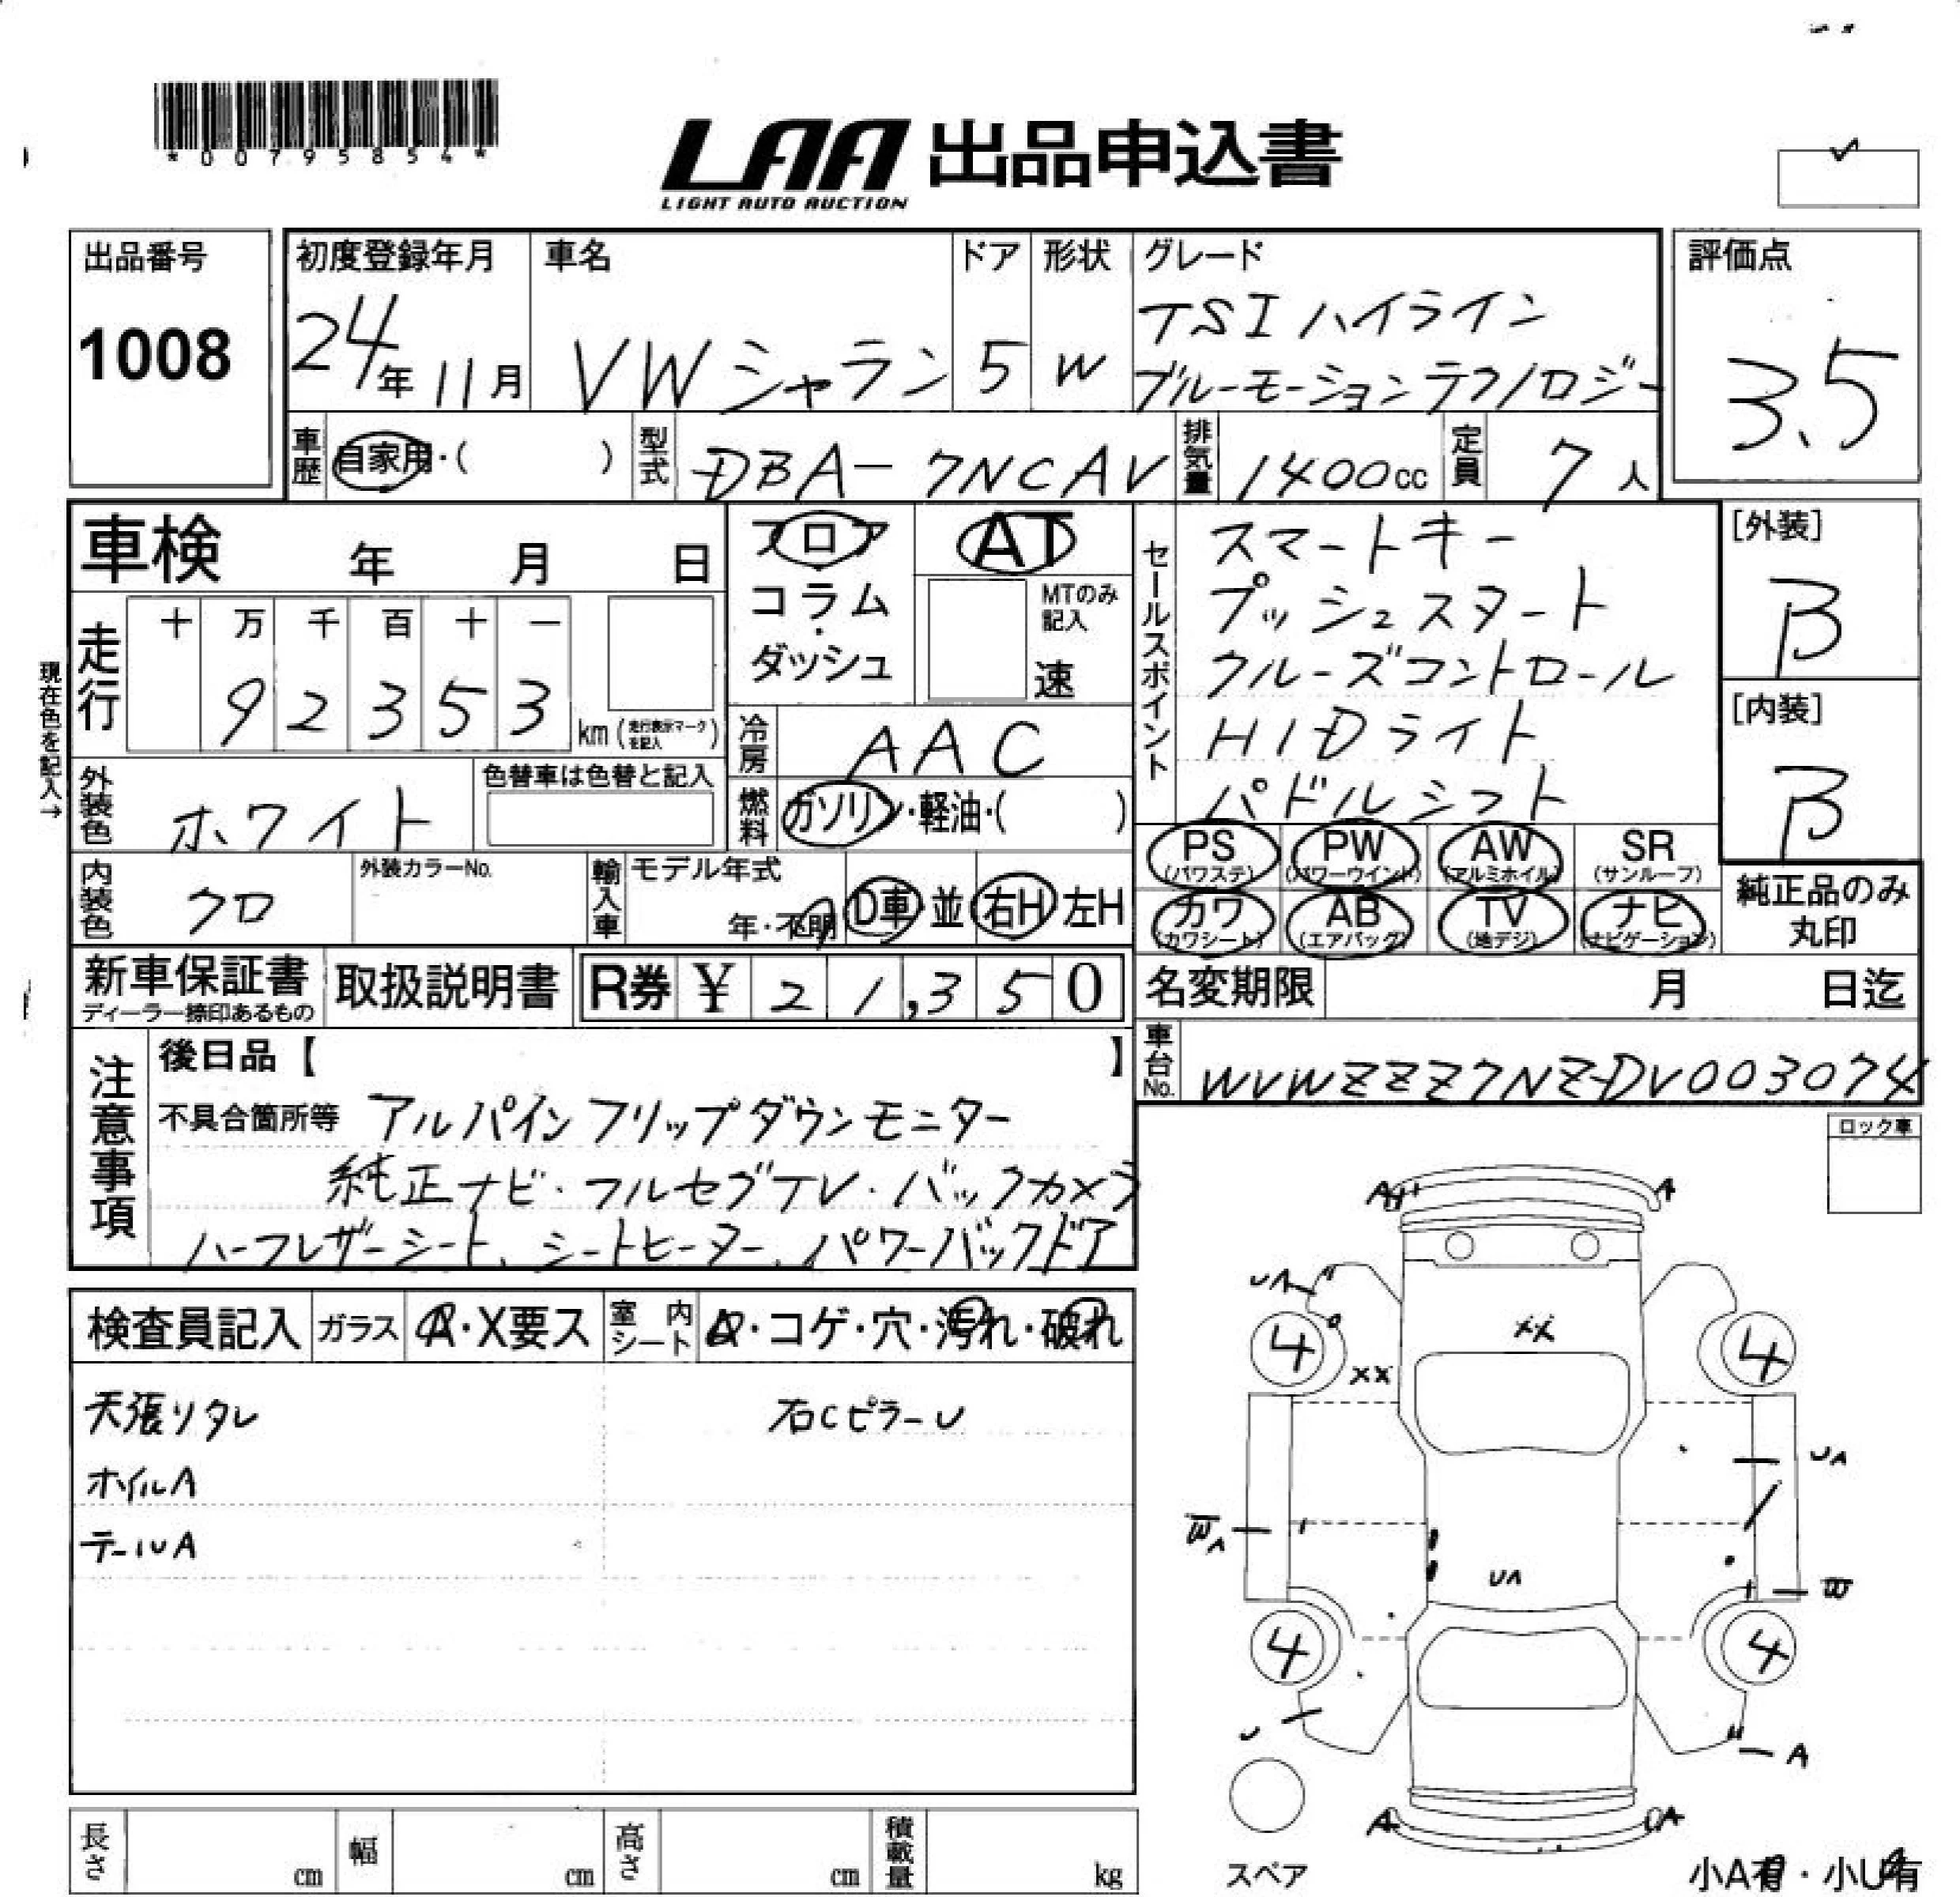 *00795854*
LAA 出品申込書
LIGHT AUTO AUCTION
出品番号
1008
初度登録年月
24年11月
車名
VWシャラン
ドア
5
形状
W
グレード
TSIハイライン
ブルーモーションテクノロジー
評価点
3.5
車歴 自家用・( )
型式 DBA-7NCAV
排気量 1400cc
定員 7人
車検 年 月 日
フロア
コラム
・
ダッシュ
AT
MTのみ
記入
速
セールスポイント
スマートキー
プッシュスタート
クルーズコントロール
HIDライト
パドルシフト
[外装]
B
[内装]
B
現在色を記入→
走行
十 万 千 百 十 一
9 2 3 5 3
km (走行表示マークを記入)
冷房 AAC
外装色 ホワイト
色替車は色替と記入
燃料 ガソリン・軽油・( )
PS
(パワステ)
PW
(パワーウインド)
AW
(アルミホイル)
SR
(サンルーフ)
カワ
(カワシート)
AB
(エアバッグ)
TV
(地デジ)
ナビ
(ナビゲーション)
純正品のみ
丸印
内装色 クロ
外装カラーNo.
輸入車
モデル年式
年・不明
D車 並 右H 左H
新車保証書
ディーラー捺印あるもの
取扱説明書
R券 ¥ 21,350
名変期限 月 日迄
車台No. WVWZZZ7NZDV003074
注意事項
後日品【 】
不具合箇所等 アルパインフリップダウンモニター
純正ナビ・フルセグTV・バックカメラ
ハーフレザーシート、シートヒーター、パワーバックドア
ロック車
検査員記入
ガラス
A・X要ス
室内シート
・コゲ・穴・汚れ・破れ
天張りタレ
右CピラーU
ホイルA
テールA
A
A
UA
XX
4
4
XX
UA
W̄A
UA
W̄
4
4
U
A
A
UA
スペア
小A有・小U有
長さ cm
幅 cm
高さ cm
積載量 kg